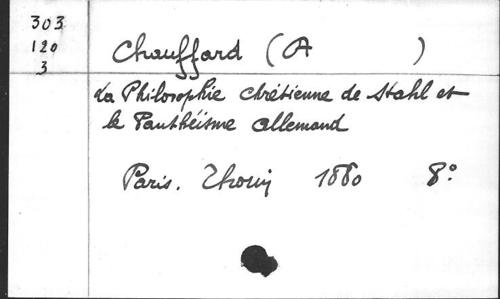 303
120
3
Chauffard (A )
La Philosophie chrétienne de Stahl et
le Panthéisme allemand
Paris. Thorin 1880 8°